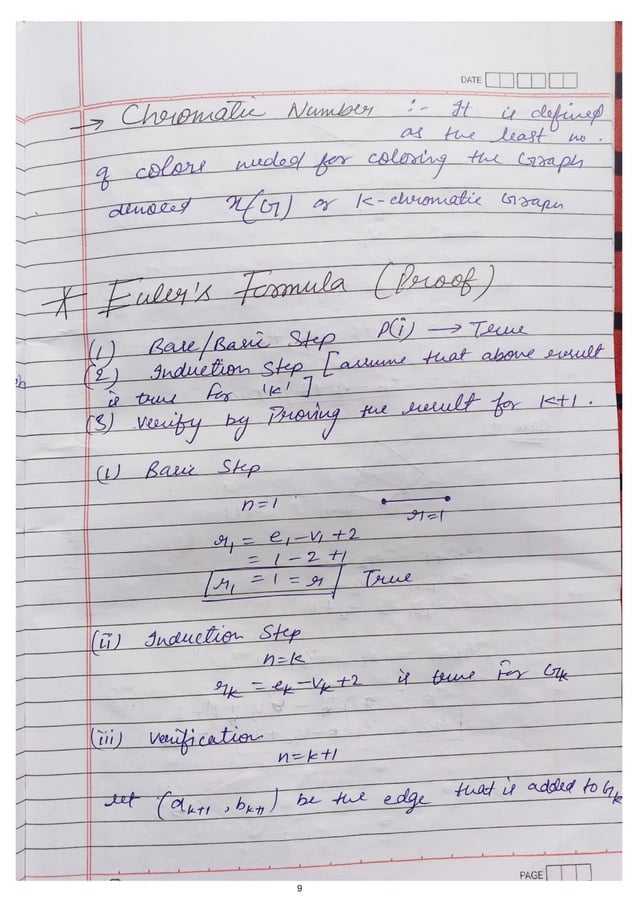 DATE
→ Chromatic Number :- It is defined
as the least no.
of colors needed for coloring the Graph
denoted χ(G) or K-chromatic Graph
* Euler's Formula (Proof)
(1) Base/Basic Step P(i) → True
(2) Induction Step [assume that above result
is true for 'k']
(3) Verify by Proving the result for k+1.
(i) Basic Step
n=1
r=1
r₁ = e₁-v₁+2
= 1-2+1
r₁ = 1 = r True
(ii) Induction Step
n=k
rₖ = eₖ-vₖ+2 is true for Gₖ
(iii) Verification
n=k+1
let (aₖ₊₁, bₖ₊₁) be the edge that is added to Gₖ
PAGE
9